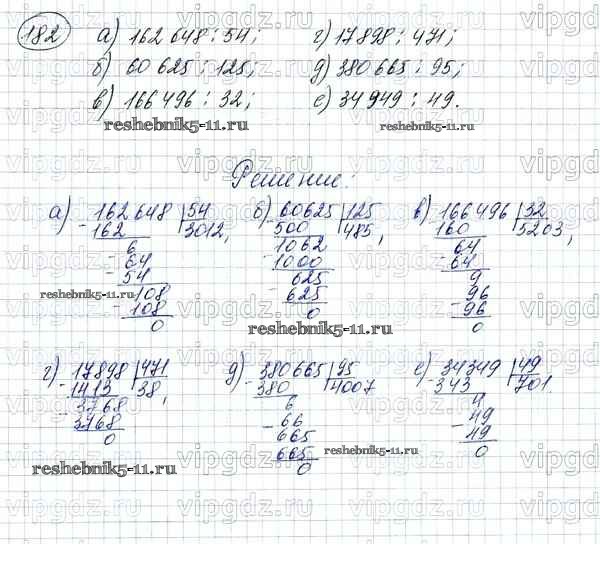 182 а) 162 648 : 54; г) 17 898 : 471;
б) 60 625 : 125; д) 380 665 : 95;
в) 166 496 : 32; е) 34 949 : 49.
reshebnik5-11.ru reshebnik5-11.ru
Решение:
а) 162 648 | 54 б) 60625 | 125 в) 166 496 | 32
- 162 3012, - 500 485, - 160 5203,
6 1062 64
- 64 - 1000 - 64
- 54 625 9
108 - 625 - 96
- 108 0 - 96
0 0
reshebnik5-11.ru
reshebnik5-11.ru
г) 17898 | 471 д) 380 665 | 95 е) 34349 | 49
- 1413 38, - 380 4007 - 343 701.
- 3768 6 4
3768 - 66 - 49
0 665 49
665 0
0
reshebnik5-11.ru
reshebnik5-11.ru
vipgdz.ru